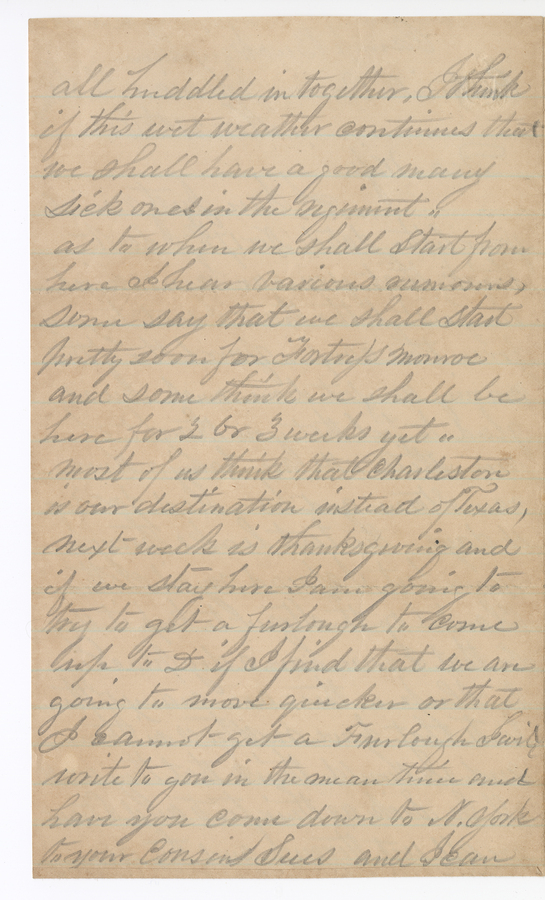 all huddled in together, I think
if this wet weather continues that
we shall have a good many
sick ones in the regiment "
as to when we shall start from
here I hear various rumours,
some say that we shall start
pretty soon for Fortress monroe
and some think we shall be
here for 2 or 3 weeks yet "
most of us think that Charleston
is our destination instead of Texas,
next week is thanksgiving and
if we stay here I am going to
try to get a furlough to come
up to D. if I find that we are
going to move quicker or that
I cannot get a Furlough I will
write to you in the mean time and
have you come down to N. York
to your Cousins and I can